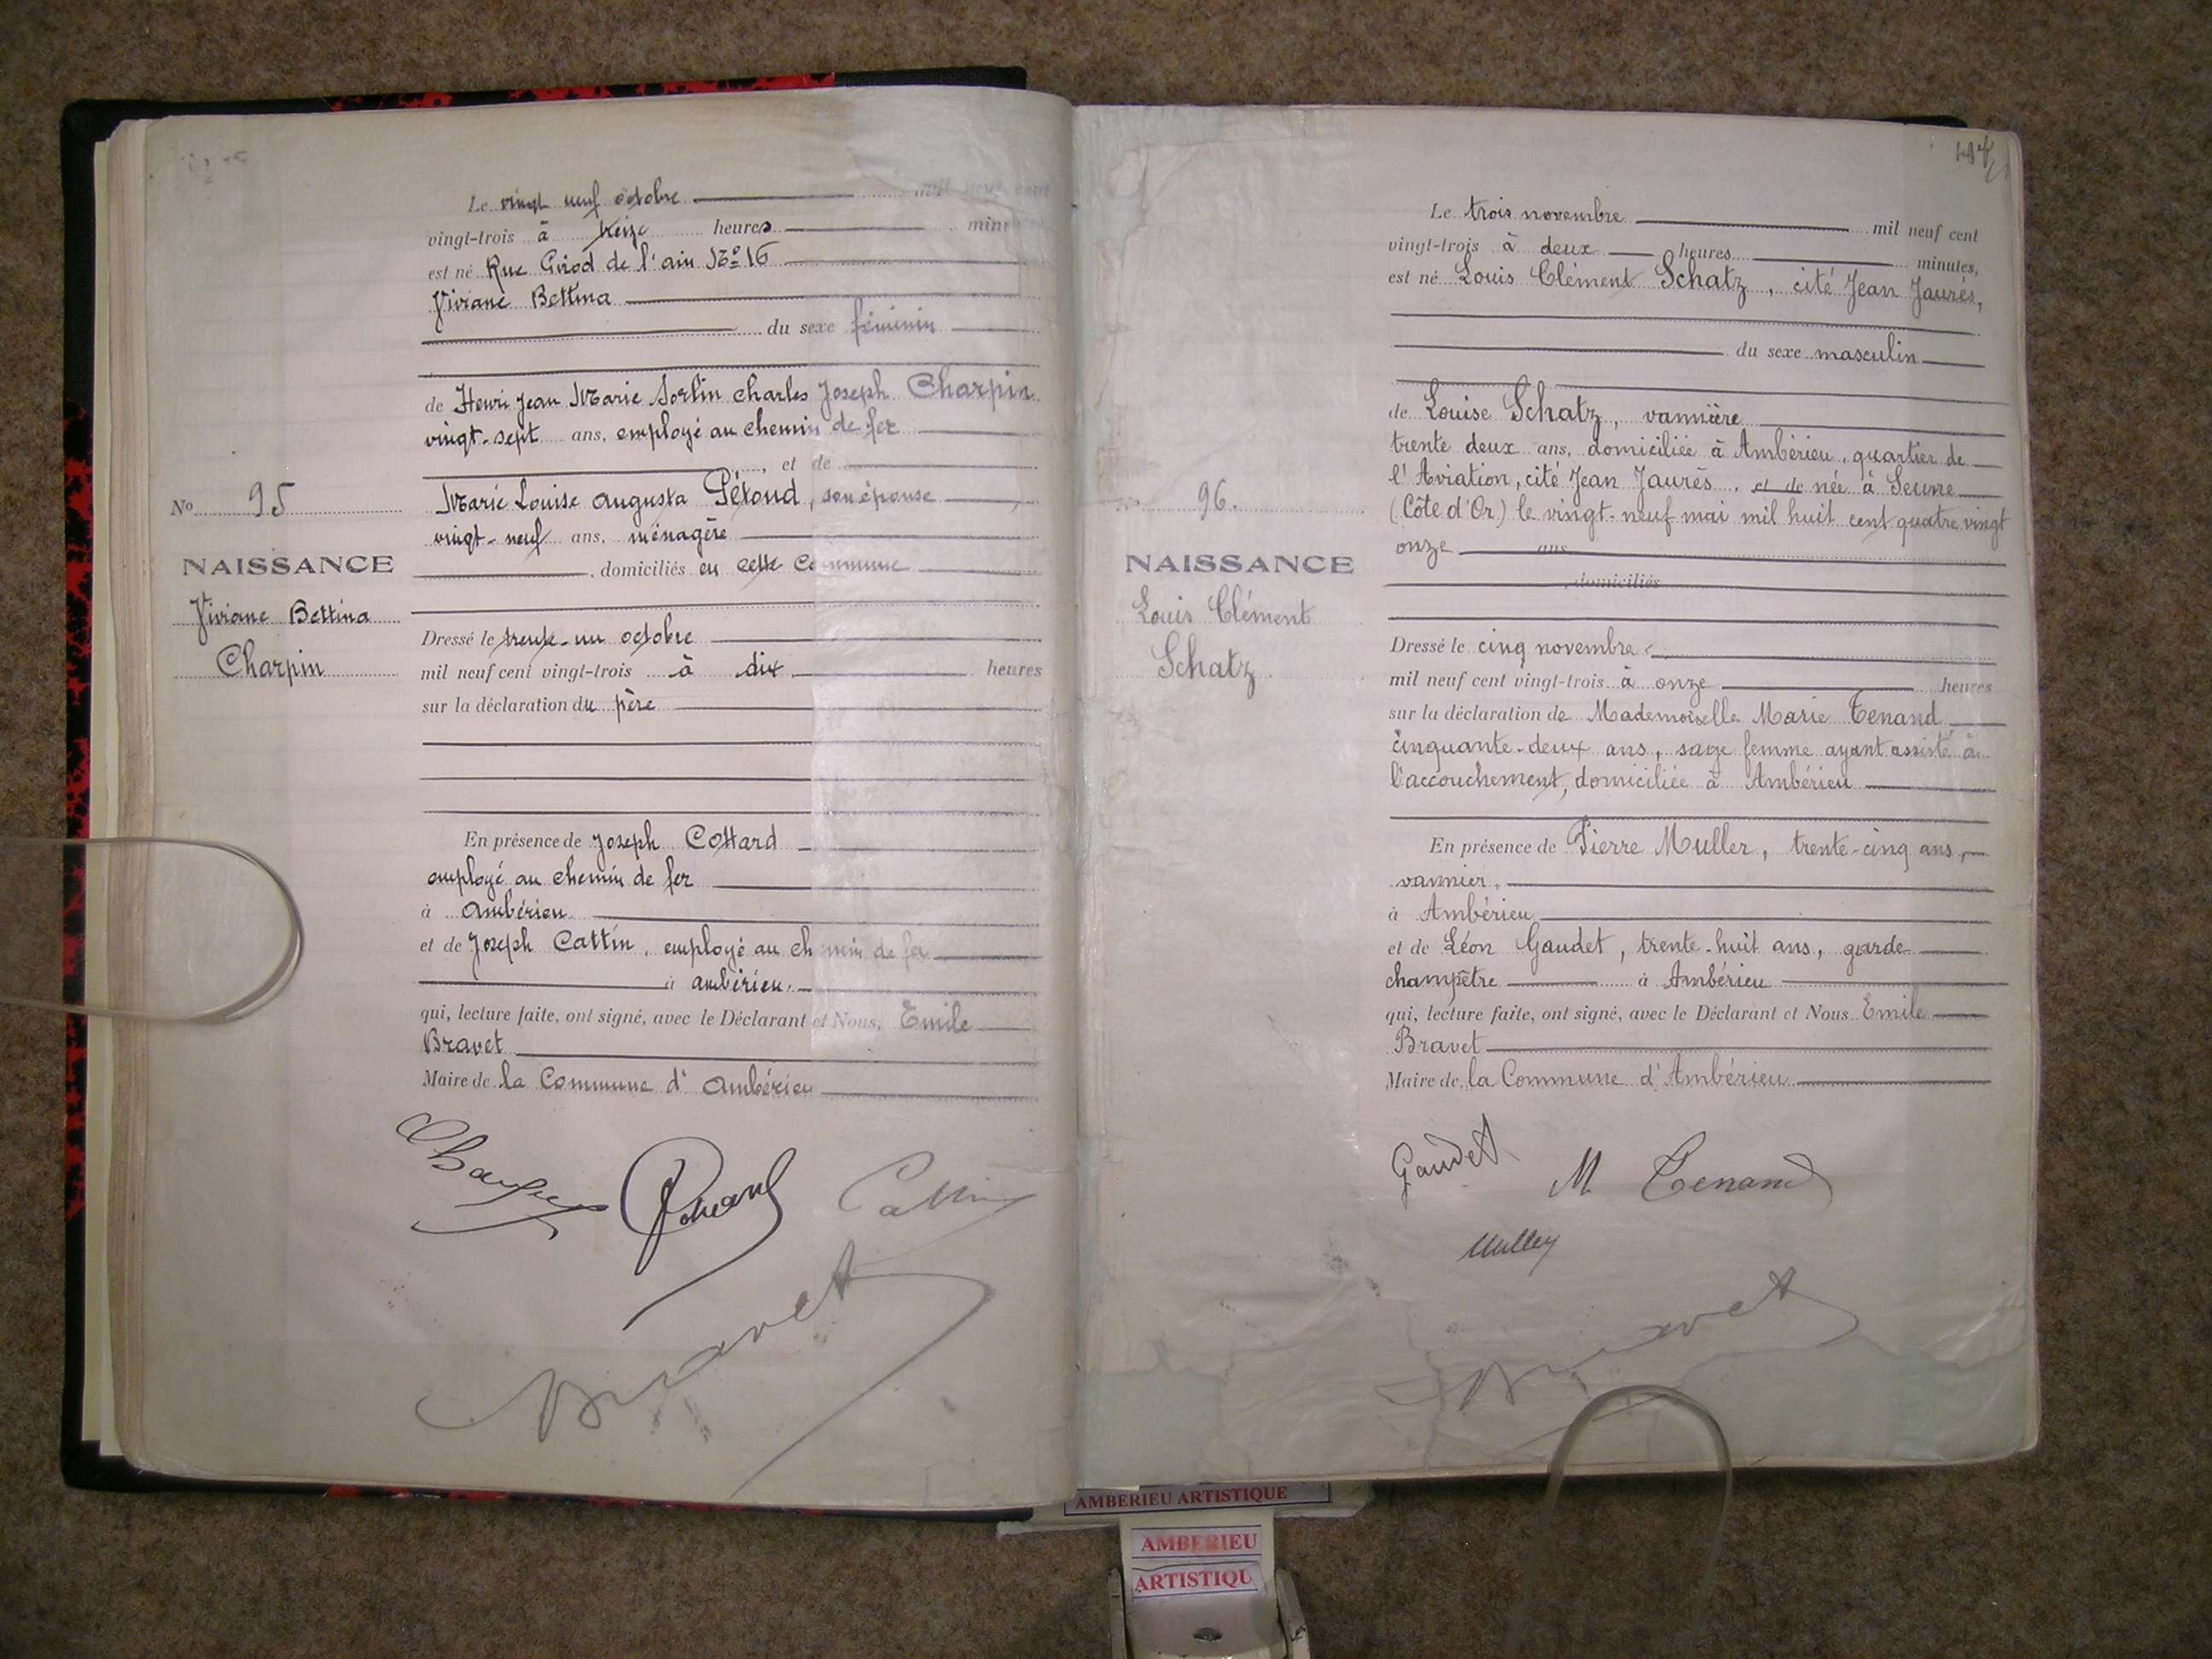 Le vingt neuf octobre
vingt-trois à treize heures minutes
est né Rue Girod de l'ain No 16
Viviane Bettina
du sexe féminin
de Henri Jean Marie Sorlin Charles Joseph Charpin
vingt-sept ans, employé au chemin de fer
, et de
Marie Louise Augusta Pétoud, son épouse
vingt-neuf ans, ménagère
, domiciliés en cette Commune
No 95
NAISSANCE
Viviane Bettina
Charpin
Dressé le trente-un octobre
mil neuf cent vingt-trois à dix heures
sur la déclaration du père
En présence de Joseph Cottard
employé au chemin de fer
à Ambérieu
et de Joseph Cattin, employé au chemin de fer
à ambérieu.
qui, lecture faite, ont signé, avec le Déclarant et Nous, Emile
Bravet
Maire de la Commune d'Ambérieu
Cattin
Bravet
Le trois novembre mil neuf cent
vingt-trois à deux heures minutes,
est né Louis Clément Schatz, cité Jean Jaurès,
du sexe masculin
de Louise Schatz, vannière
trente deux ans, domiciliée à Ambérieu, quartier de
l'Aviation, cité Jean Jaurès, et de née à Seurre
(Côte d'Or) le vingt-neuf mai mil huit cent quatre vingt
onze ans,
, domiciliés
96.
NAISSANCE
Louis Clément
Schatz
Dressé le cinq novembre
mil neuf cent vingt-trois à onze heures
sur la déclaration de Mademoiselle Marie Tenand
cinquante-deux ans, sage femme ayant assisté à
l'accouchement, domiciliée à Ambérieu
En présence de Pierre Muller, trente-cinq ans,
vannier,
à Ambérieu
et de Léon Gaudet, trente-huit ans, garde
champêtre à Ambérieu
qui, lecture faite, ont signé, avec le Déclarant et Nous Emile
Bravet
Maire de la Commune d'Ambérieu
Gaudet M Tenand
Muller
Bravet
AMBERIEU ARTISTIQUE
AMBERIEU
ARTISTIQU